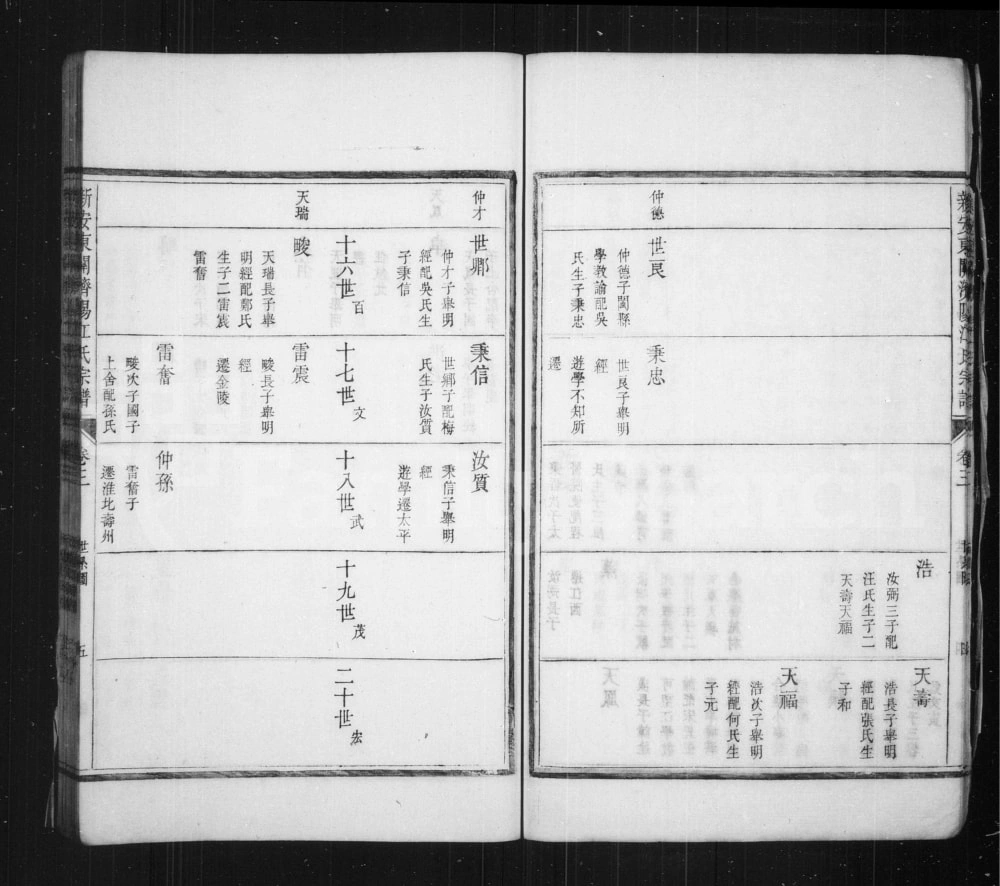 新安東關濟陽江氏宗譜
卷三
世系圖
仲德
世良
仲德子閩縣
學教諭配吳
氏生子秉忠
秉忠
世良子舉明
經
遊學不知所
遷
浩
汝弼三子配
汪氏生子二
天壽天福
天壽
浩長子舉明
經配張氏生
子和
天福
浩次子舉明
經配何氏生
子元
仲才
世卿
仲才子舉明
經配吳氏生
子秉信
秉信
世卿子配梅
氏生子汝質
汝質
秉信子舉明
經
遊學遷太平
十六世百
十七世文
十八世武
十九世茂
二十世宏
天瑞
畯
天瑞長子舉
明經配鄭氏
生子二雷震
雷奮
雷震
畯長子舉明
經
遷金陵
雷奮
畯次子國子
上舍配孫氏
仲孫
雷奮子
遷淮北壽州
新安東關濟陽江氏宗譜
卷三
世系圖
五